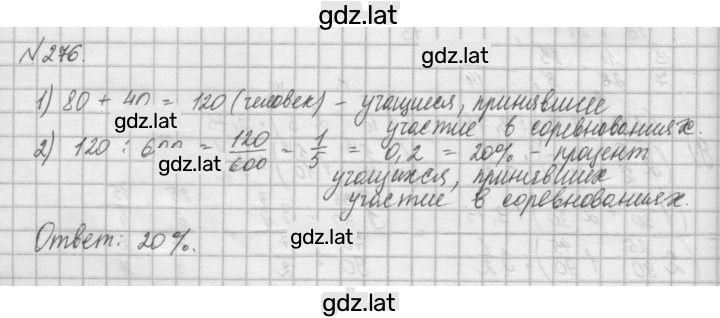 gdz.lat
№276.
gdz.lat
1) 80 + 40 = 120 (человек) - учащиеся, принявшие
gdz.lat
участие в соревнованиях.
2) 120 : 600 = 120/600 = 1/5 = 0,2 = 20% - процент
gdz.lat
учащихся, принявших
участие в соревнованиях.
Ответ: 20%.
gdz.lat
gdz.lat